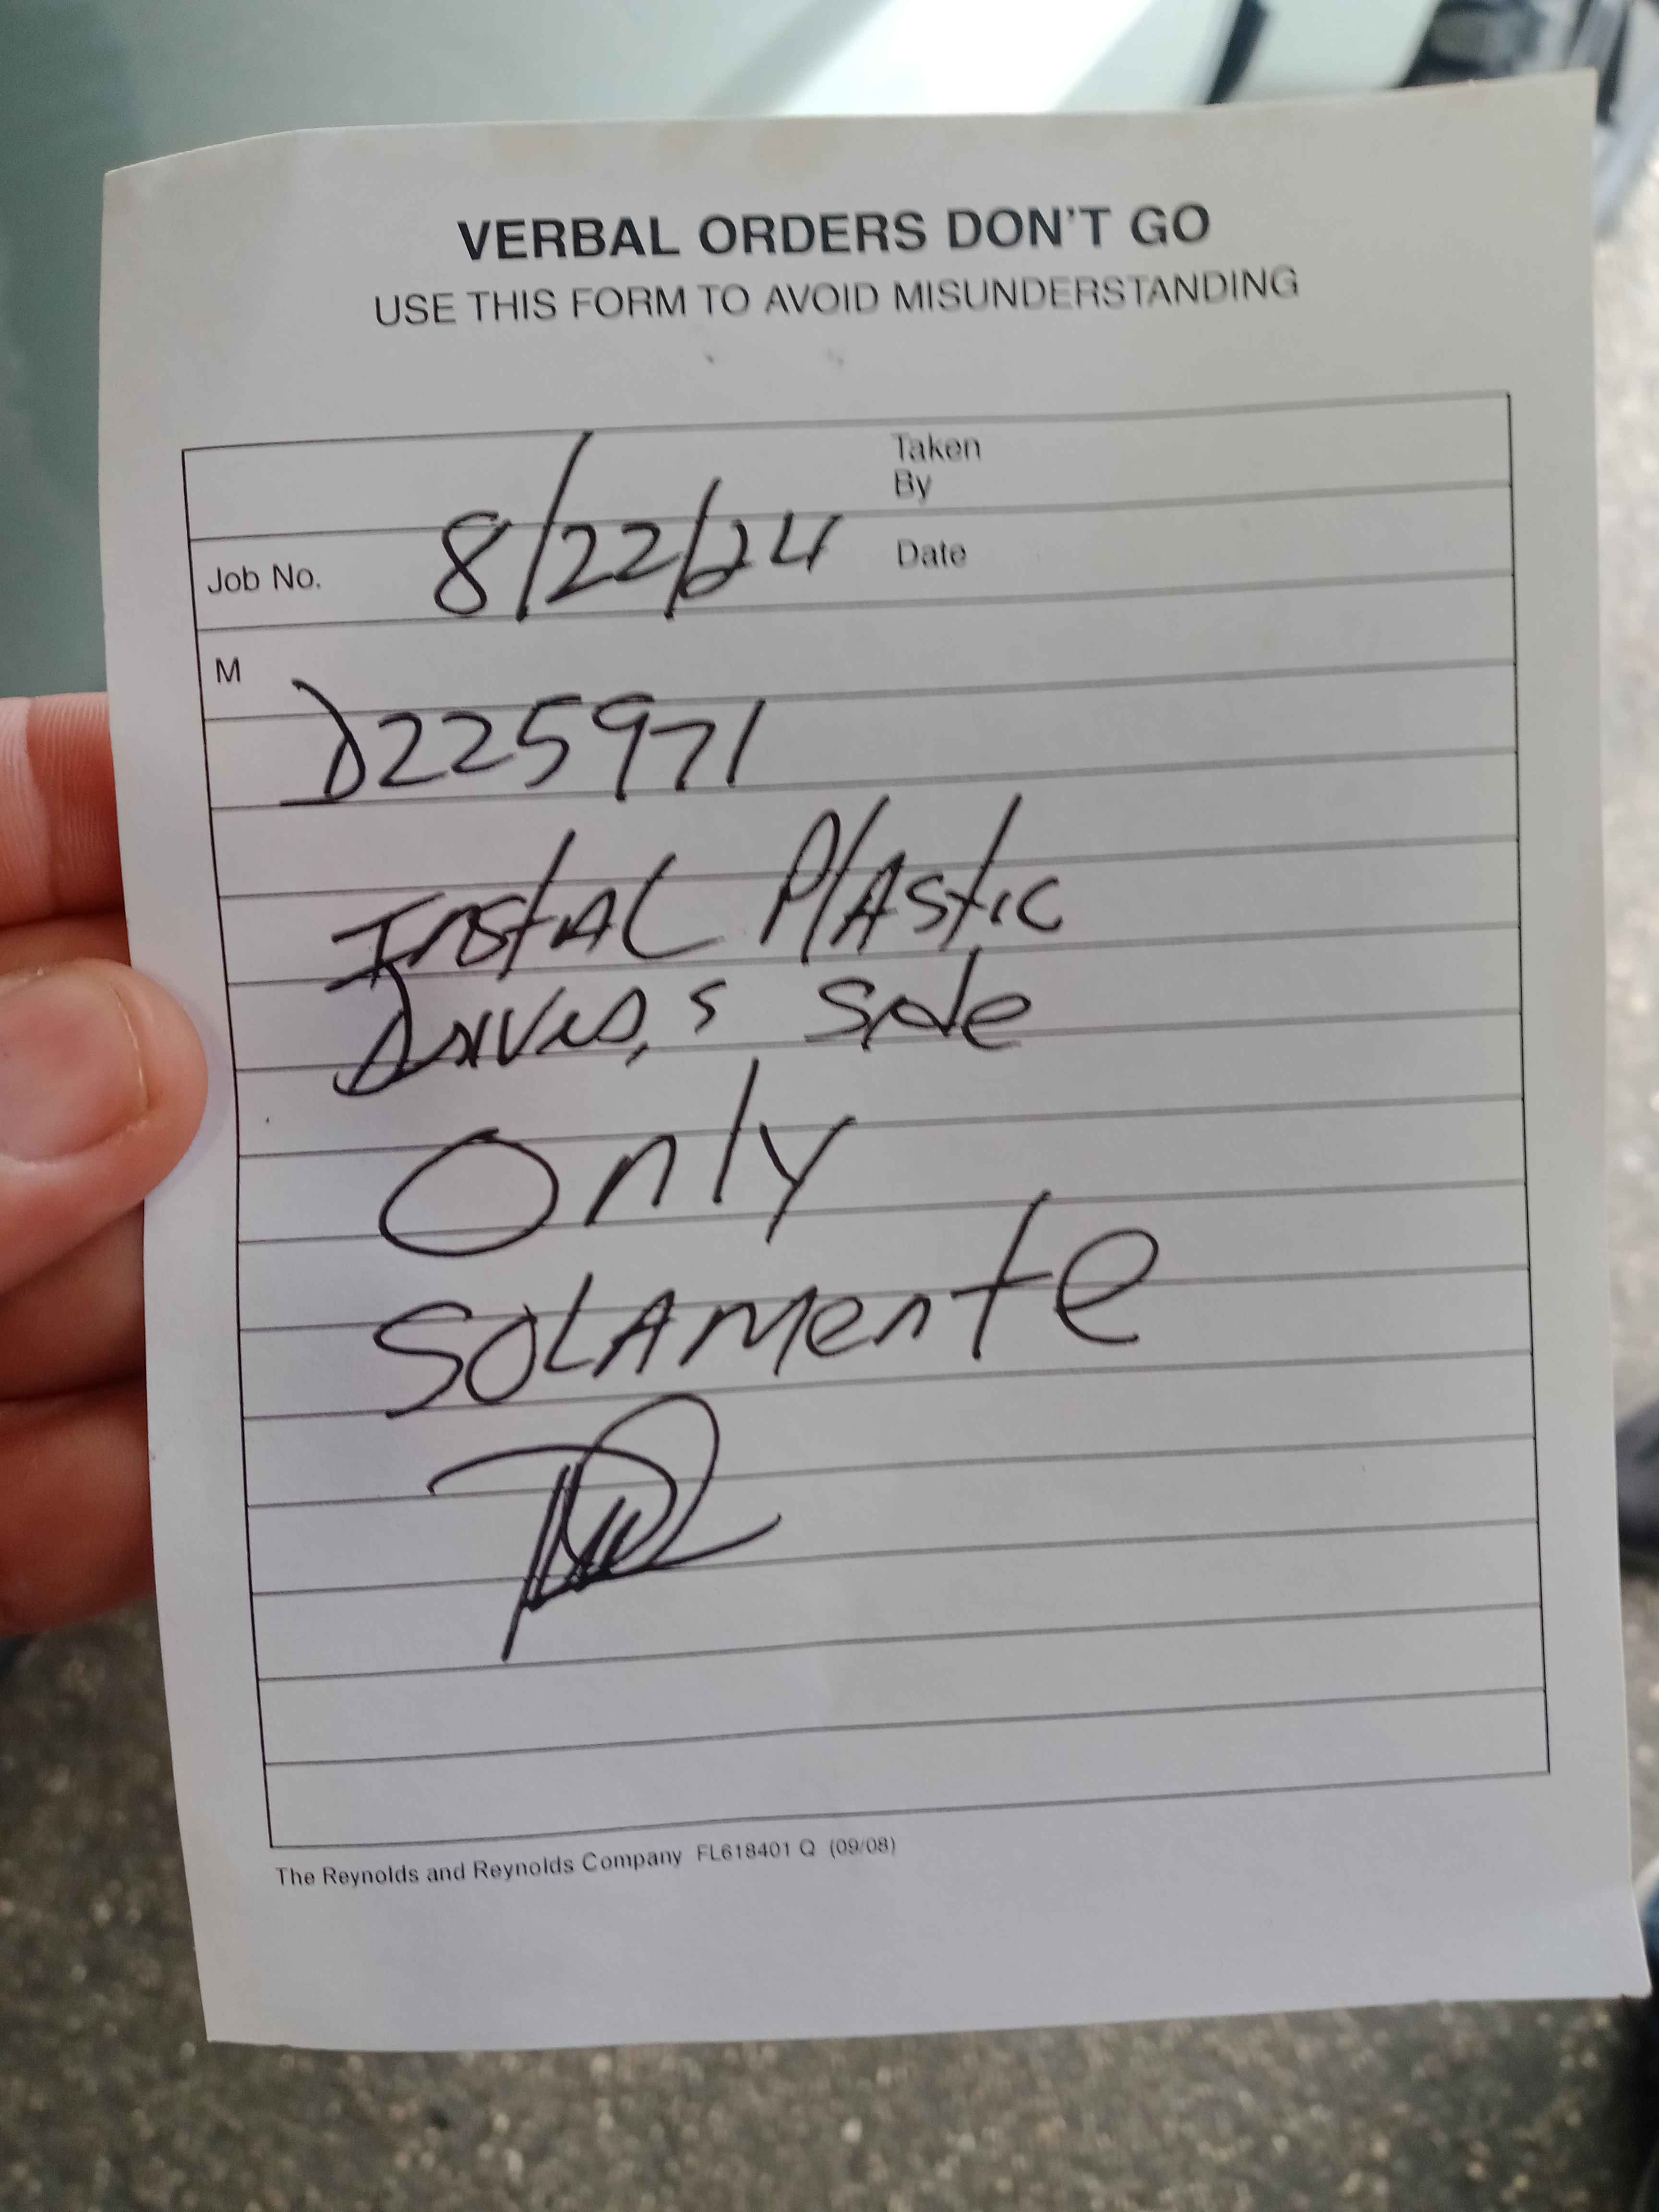 VERBAL ORDERS DON'T GO
USE THIS FORM TO AVOID MISUNDERSTANDING
Taken
By
Job No. 8/22/24 Date
M
D225971
Instal Plastic
Drivers side
Only
SOLAmente
The Reynolds and Reynolds Company FL618401 Q (09/08)